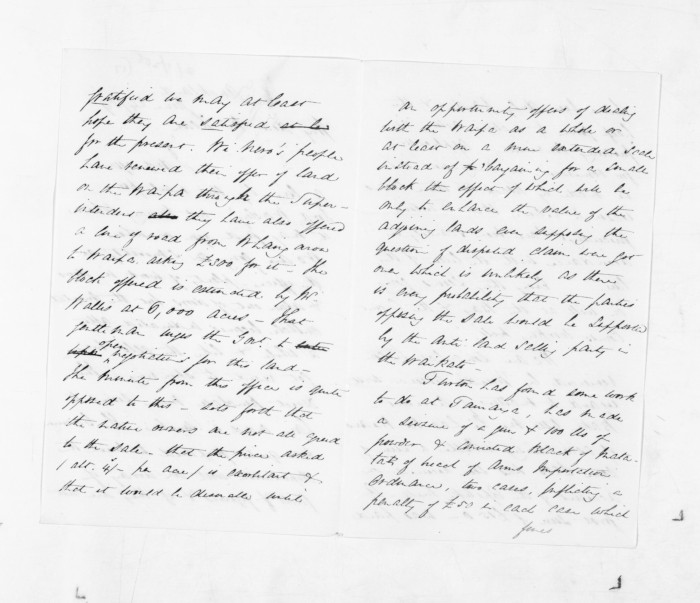 gratified we may at least
hope they are satisfied at le
for the present. Wi Nero's people
have renewed their offer of land
on the Waipa through the Super-
intendent also they have also offered
a line of road from Whaingaroa
to Waipa asking £500 for it - The
block offered is estimated by Mr
Wallis at 6,000 acres - That
gentleman urges the Govt. to enter
open negotiations for this land -
The minute from this office is quite
opposed to this - sets forth that
the native owners are not all agreed
to the sale - that the price asked
(abt. 4/- per acre) is exorbitant &
that it would be desirable until
an opportunity offers of dealing
with the Waipa as a whole or
at least on a more extended scale
instead of bargaining for a small
block the effect of which will be
only to enhance the value of the
adjoining lands even supposing the
question of disputed claim were got
over which is unlikely as there
is every probability that the parties
opposing the sale would be supported
by the anti land selling party in
the Waikato -
Turton has found some work
to do at Tauranga, has made
a seizure of a gun & 100 lbs of
powder & convicted Black of Mata-
ta of breach of Arms Importation
Ordinance, two cases, inflicting a
penalty of £50 in each case which
fines